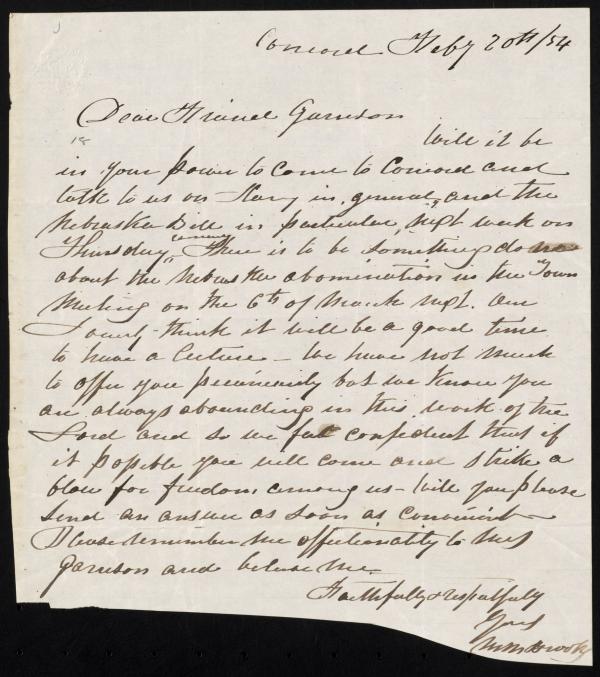 Concord Feby 20th/54
Dear Friend Garrison
Will it be
in your power to come to Concord and
talk to us on Slavery in general, and the
Nebraska Bill in particular, next week on
Thursday evening, There is to be something done
about the Nebraska abomination in the Town
Meeting on the 6th of March next. Our
Society think it will be a good time
to have a lecture - We have not much
to offer you pecuniarily but we know you
are always abounding in this work of the
Lord and so we feel confident that if
it possible you will come and strike a
blow for freedom among us - Will you please
send an answer as soon as convenient
Please remember me affectionately to Mrs
Garrison and believe me
Faithfully & respectfully
Yours
Brooks